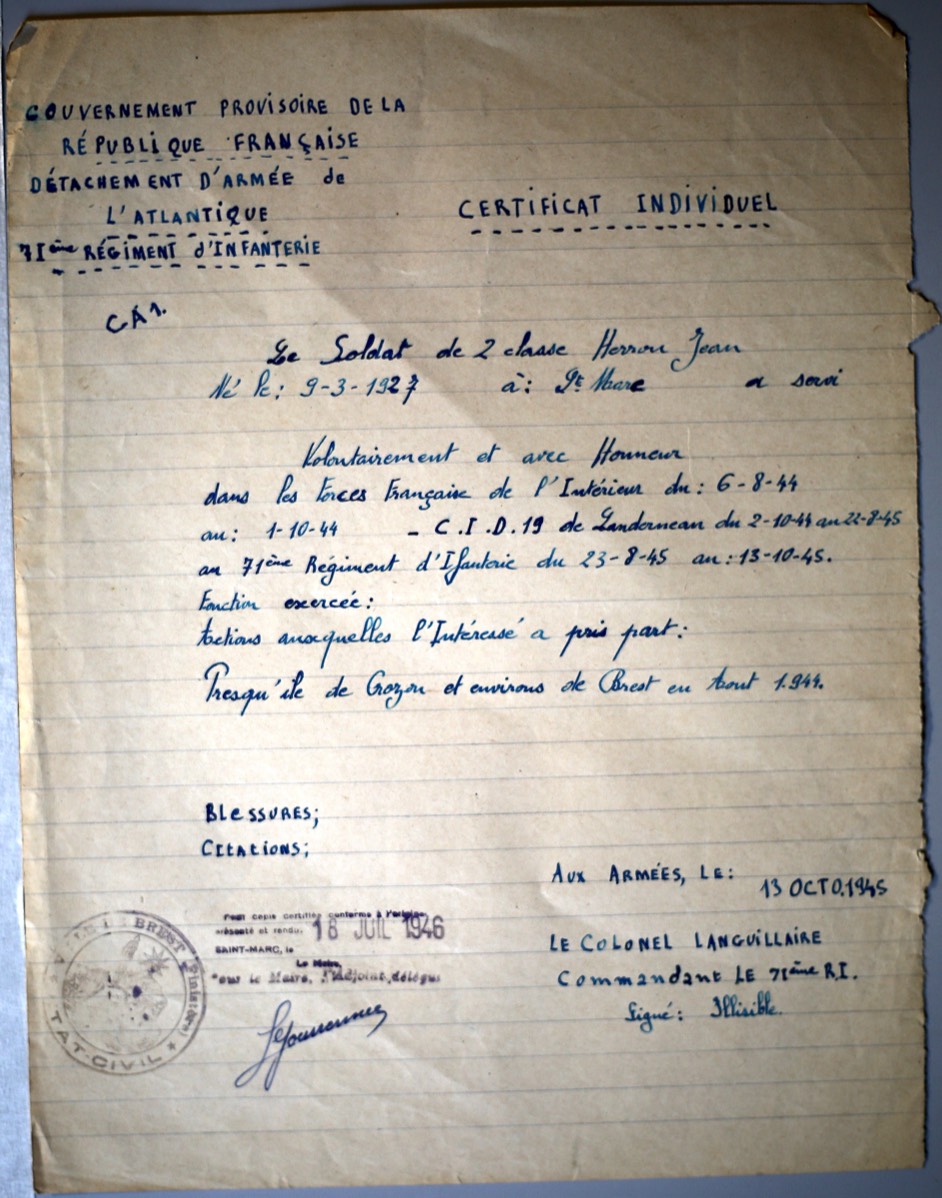 GOUVERNEMENT PROVISOIRE DE LA
RÉPUBLIQUE FRANÇAISE
DÉTACHEMENT D'ARMÉE de
L'ATLANTIQUE
71ème RÉGIMENT d'INFANTERIE
CERTIFICAT INDIVIDUEL
CA1.
Le Soldat de 2 classe Herrou Jean
Né le: 9-3-1927 à: St Marc a servi
Volontairement et avec Honneur
dans les Forces Française de l'Intérieur du: 6-8-44
au: 1-10-44 - C.I.D.19 de Landerneau du 2-10-44 au 22-8-45
au 71ème Régiment d'Ifanterie du 23-8-45 au: 13-10-45.
Fonction exercée:
Actions auxquelles l'Intéressé a pris part:
Presqu'île de Crozon et environs de Brest en Aout 1.944.
BLESSURES;
CITATIONS;
AUX ARMÉES, LE: 13 OCTO.1945
LE COLONEL LANGUILLAIRE
Commandant LE 71ème R.I.
Signé: Illisible.
Pour copie certifiée conforme à l'original
présenté et rendu.
18 JUIL 1946
SAINT-MARC, le
Le Maire,
Pour le Maire, l'Adjoint délégué
BREST (Finistère)
ÉTAT-CIVIL